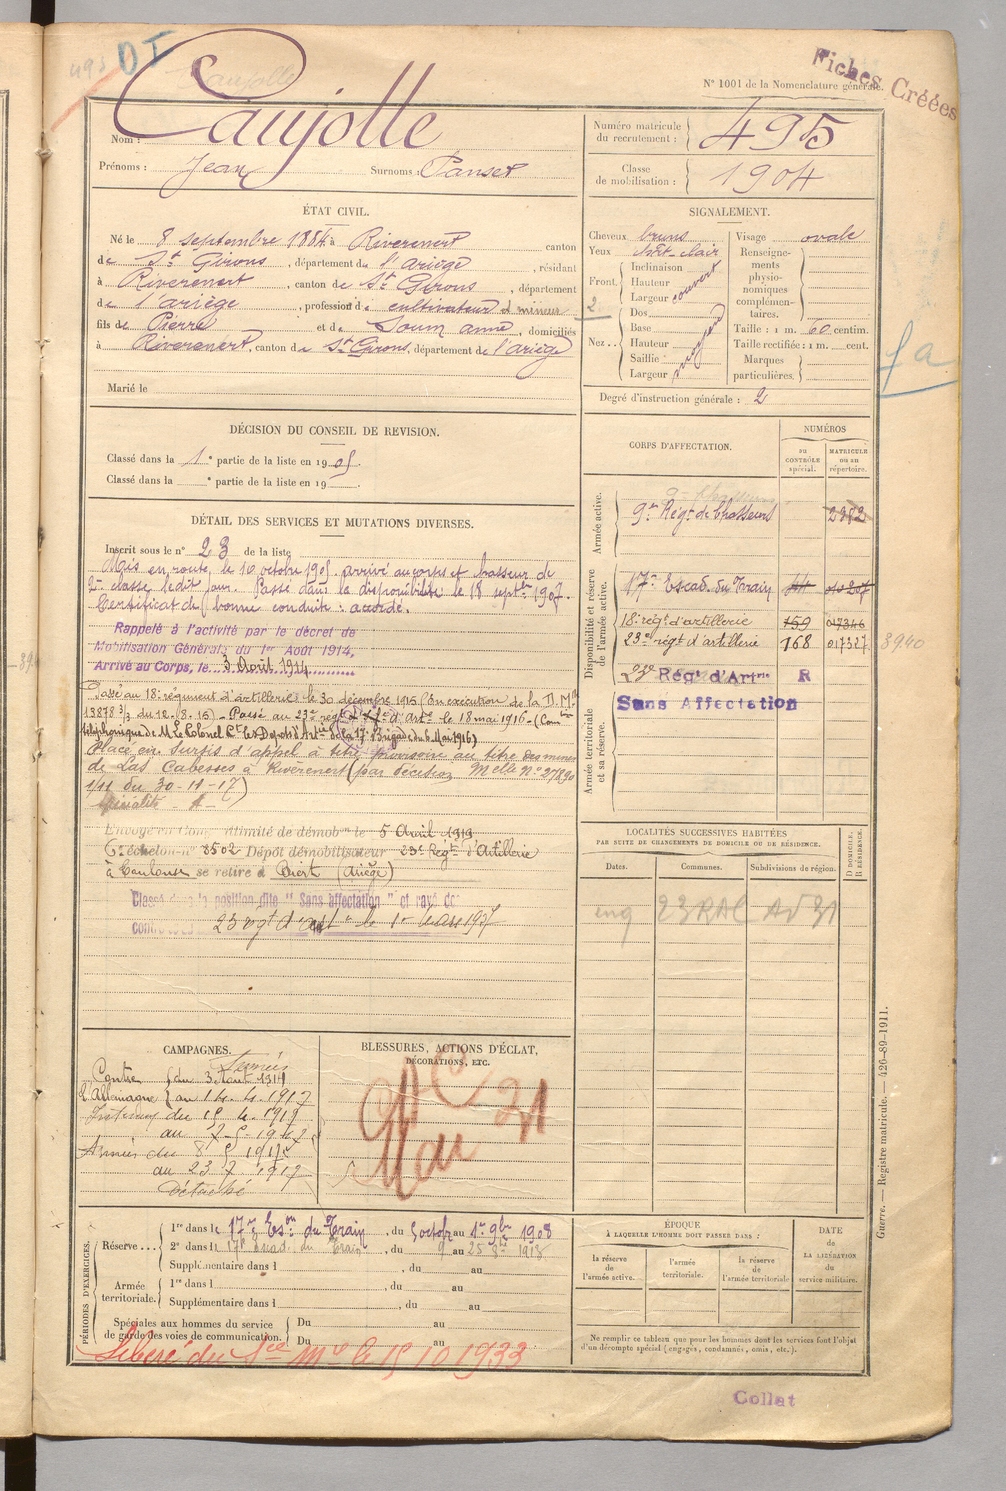 495 DI
Fiches Créées
N° 1001 de la Nomenclature générale.
Nom : Caujolle
Prénoms : Jean Surnoms : Panset
Numéro matricule du recrutement : 495
Classe de mobilisation : 1904
ÉTAT CIVIL.
Né le 8 septembre 1884 à Riverenert canton
de St Girons, département de l'ariège, résidant
à Riverenert, canton de St Girons, département
de l'ariège, profession de cultivateur et mineur
fils de Pierre et de Soum anne, domiciliés
à Riverenert, canton de St Girons, département de l'ariège
Marié le
SIGNALEMENT.
Cheveux bruns
Yeux clair
Front. Inclinaison
Hauteur
Largeur couvert
2
Nez.. Dos
Base
Hauteur
Saillie
Largeur
Visage ovale
Renseignements physionomiques complémentaires.
Taille : 1 m. 60 centim.
Taille rectifiée : 1 m. cent.
Marques particulières.
Degré d'instruction générale : 2
DÉCISION DU CONSEIL DE REVISION.
Classé dans la 1e partie de la liste en 1905.
Classé dans la e partie de la liste en 19 .
DÉTAIL DES SERVICES ET MUTATIONS DIVERSES.
Inscrit sous le n° 23 de la liste
Mis en route le 10 octobre 1905 arrivé au corps et chasseur de
2e classe ledit jour. Passé dans la disponibilité le 18 septbre 1907.
Certificat de bonne conduite : accordé.
Rappelé à l'activité par le décret de
Mobilisation Générale du 1er Août 1914,
Arrivé au Corps, le 3 Août 1914
Passé au 18e régiment d'artillerie le 30 décembre 1915 (En exécution de la D. Mlle
13878 3/3 du 12.8.15) - Passé au 23e régt d'Artie le 18 mai 1916 - (Comon
téléphonique de M. Le Colonel Ct les Dépôts d'Artie de la 17e Brigade du 6 Mai 1916)
Placé en sursis d'appel à titre provisoire au titre des mines
de Las Cabesses à Rivèrenert (par décision Melle N° 27890
1/11 du 30-11-17)
Envoyé en Congé illimité de démobon le 5 Avril 1919
6e échelon n° 3502 Dépôt démobilisateur 23e Régt d'Artillerie
à Toulouse se retire à Biert (Ariège)
Classé dans la position dite "Sans affectation" et rayé des
23 rgt d'artie le 1er Mars 1927
CORPS D'AFFECTATION.
NUMÉROS
au CONTRÔLE spécial.
MATRICULE ou au répertoire.
Armée active.
9e Régt de Chasseurs 2372
Disponibilité et réserve de l'armée active.
17e Escad. du Train
18e régt d'artillerie 159 017346
23e régt d'artillerie 168 017327 8940
23e Régt d'Artrie R
Sans Affectation
Armée territoriale et sa réserve.
LOCALITÉS SUCCESSIVES HABITÉES
PAR SUITE DE CHANGEMENTS DE DOMICILE OU DE RÉSIDENCE.
Dates. Communes. Subdivisions de région.
D DOMICILE. R RÉSIDENCE.
23 RAC Ad 31
CAMPAGNES.
Contre l'Allemagne
du 3 Août 1914
au 14.4.1917
Intérieur du 15.4.1917
au 7-5-1917
Armées du 8 5 1917
au 23 7 1917
Détaché
BLESSURES, ACTIONS D'ÉCLAT,
DÉCORATIONS, ETC.
PÉRIODES D'EXERCICES.
Réserve... 1re dans le 17e Eson du Train, du 5 octbre au 1er 9bre 1908
2e dans le 17e escad. du Train, du 9 au 25
Supplémentaire dans l , du au
Armée territoriale. 1re dans l , du au
Supplémentaire dans l , du au
Spéciales aux hommes du service de garde des voies de communication. Du au
Du au
Libéré du Sce Mre le 15 10 1933
ÉPOQUE
À LAQUELLE L'HOMME DOIT PASSER DANS :
la réserve de l'armée active.
l'armée territoriale.
la réserve de l'armée territoriale
DATE de LA LIBÉRATION du service militaire.
Ne remplir ce tableau que pour les hommes dont les services font l'objet
d'un décompte spécial (engagés, condamnés, omis, etc.).
Guerre. — Registre matricule. — 426-89-1911.
Collat